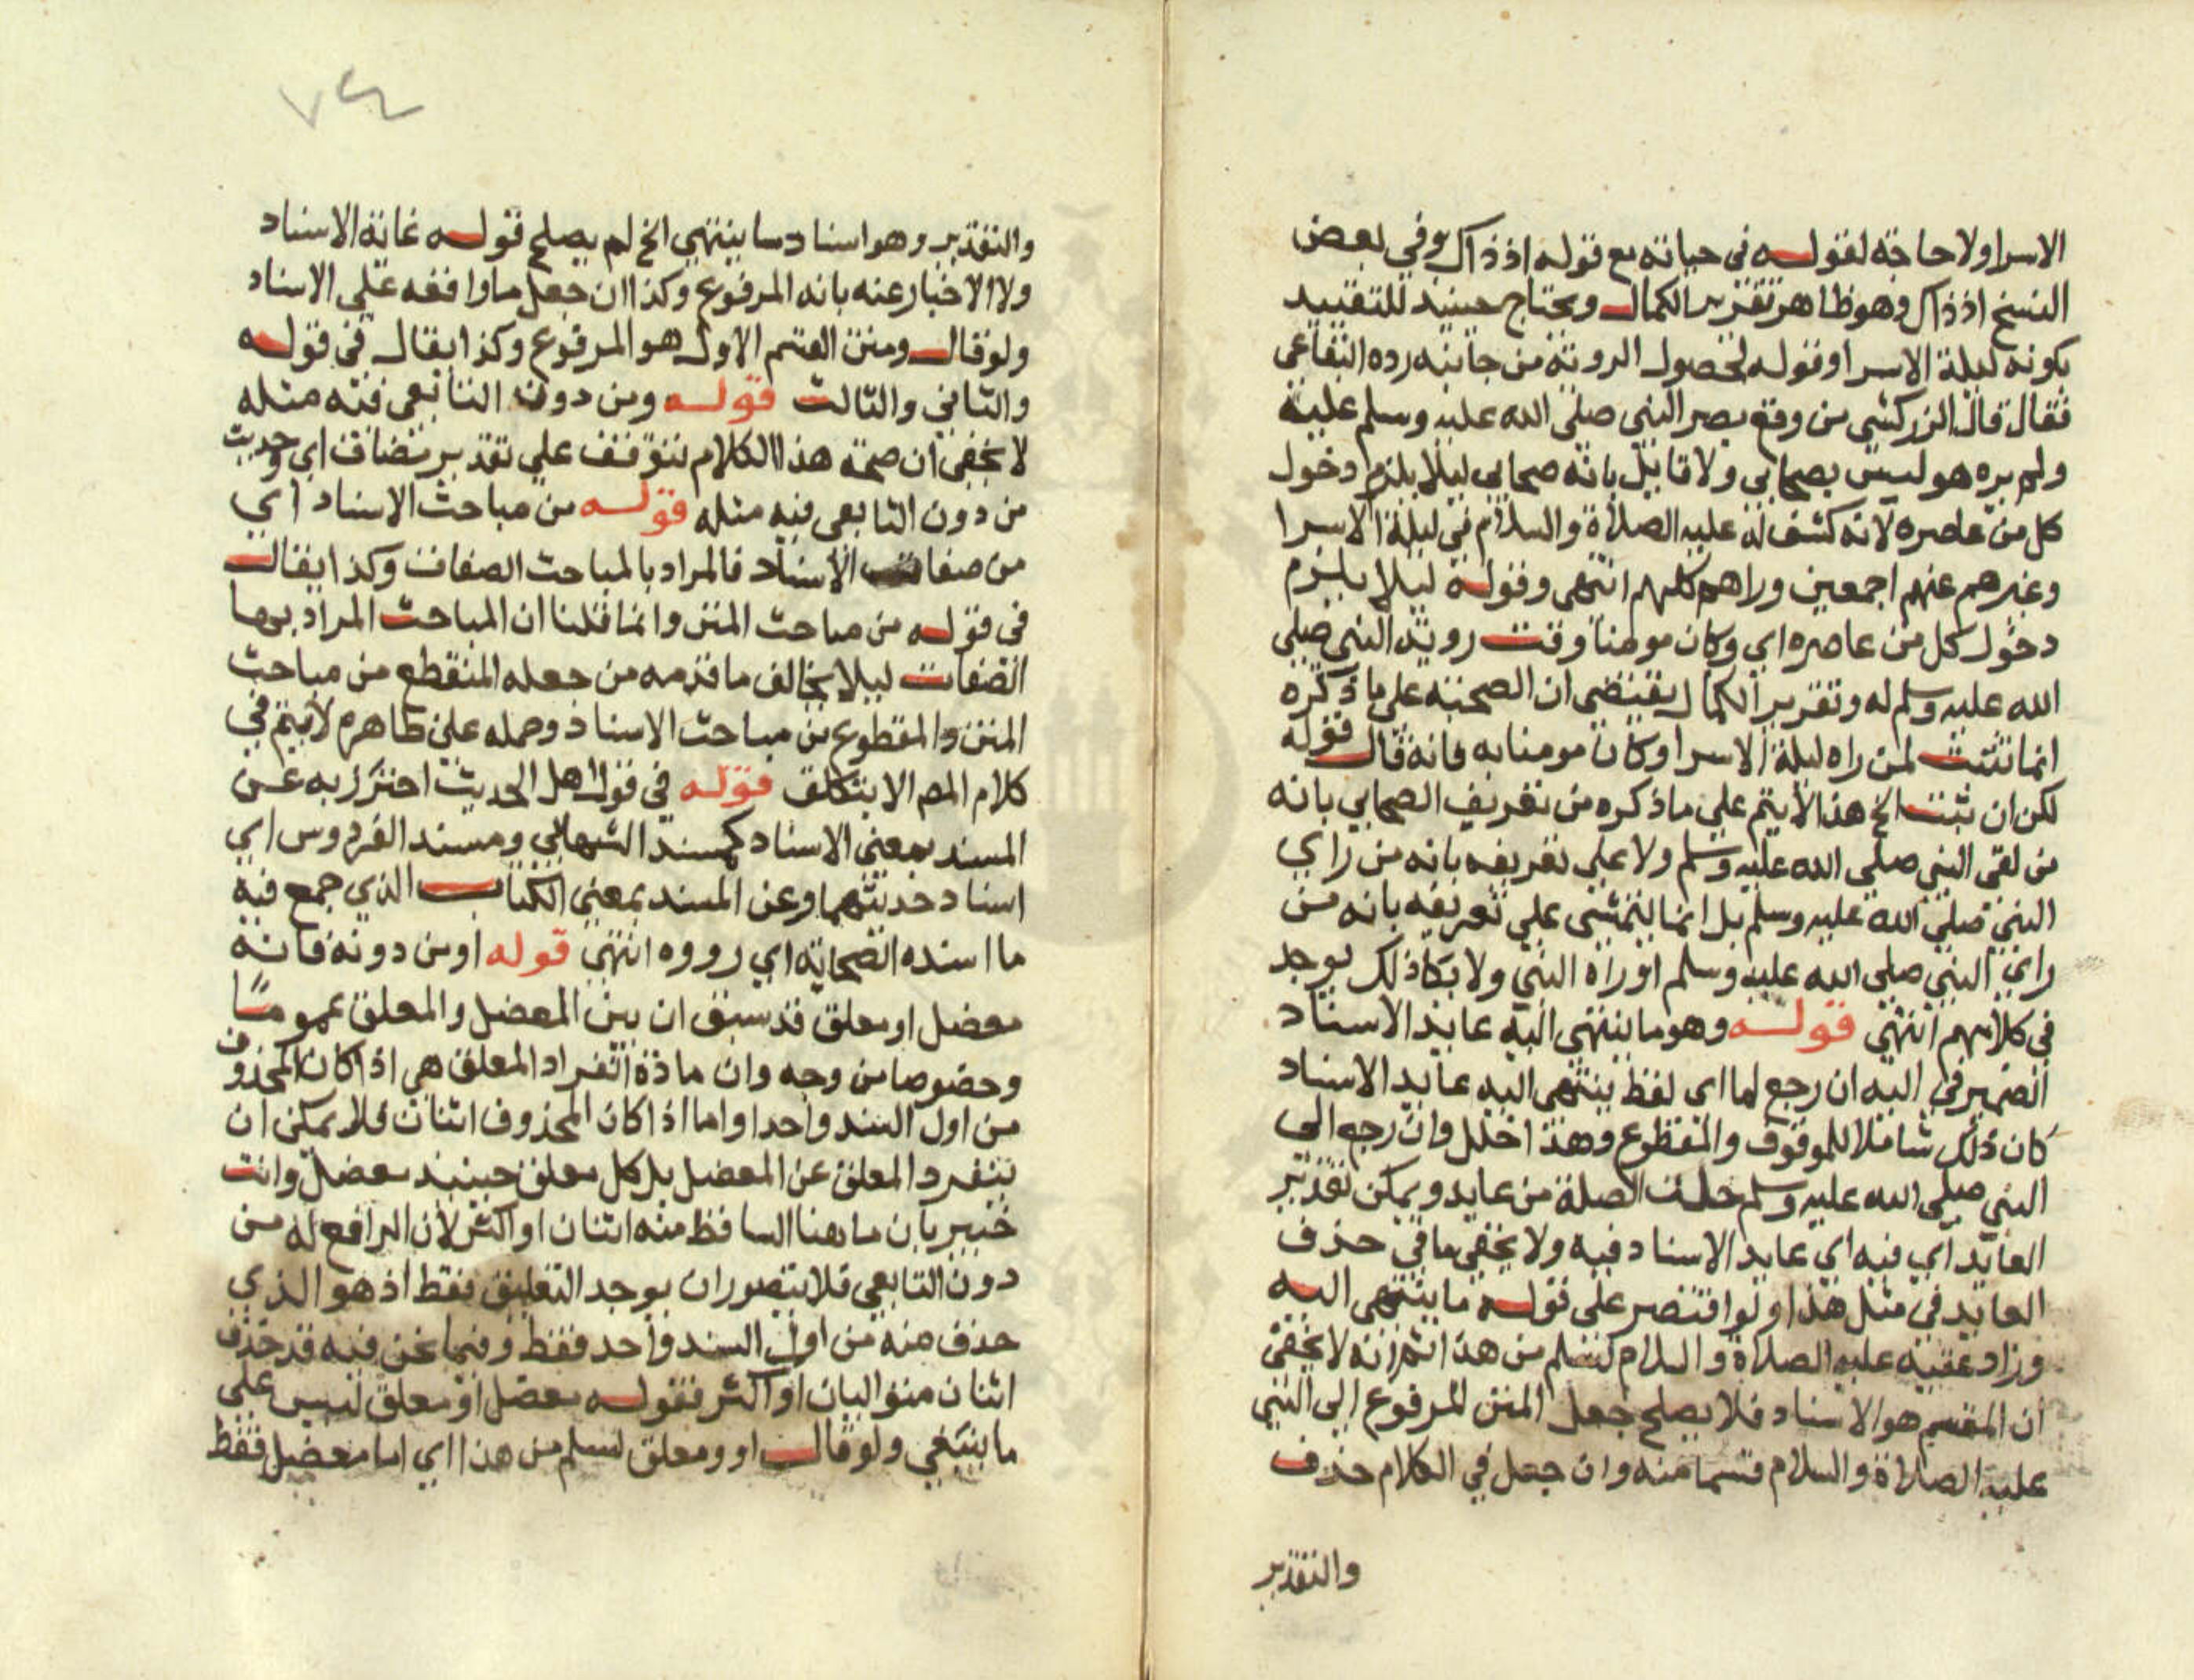 الاسرا ولا حاجة لقوله في حياته مع قوله اذ ذاك وفي بعض
النسخ اذ ذاك وهو ظاهر تقرير الكمال ويحتاج حينيذ للتقييد
بكونه ليلة الاسرا وقوله لحصول الروية من جانبه رده البقاعي
فقال قال الزركشي من وقع بصر النبي صلى الله عليه وسلم عليه
ولم يره هو ليس بصحابي ولا قايل بانه صحابي ليلا يلزم دخول
كل من عاصره لانه كشف له عليه الصلاة والسلام في ليلة الاسرا
وغيرهم عنهم اجمعين وراهم كلهم انتهى وقوله ليلا يلزم
دخول كل من عاصره اي وكان مومنا وقت روية النبي صلى
الله عليه وسلم له وتقرير الكمال يقتضي ان الصحبة على ما ذكره
انما تثبت لمن راه ليلة الاسرا وكان مومنا به فانه قال قوله
لكن ان ثبت الخ هذا لا يتم على ما ذكره من تعريف الصحابي بانه
من لقي النبي صلى الله عليه وسلم ولا على تعريفه بانه من راي
النبي صلى الله عليه وسلم بل انما يتمشى على تعريفه بانه من
راي النبي صلى الله عليه وسلم او راه النبي ولا يكاد ذلك يوجد
في كلامهم انتهى قوله وهو ما ينتهي اليه غاية الاسناد
الضمير في اليه ان رجع لما اي لفظ ينتهي اليه غاية الاسناد
كان ذلك شاملا للموقوف والمقطوع وهذا خلل وان رجع الى
النبي صلى الله عليه وسلم خلت الصلة من عايد ويمكن تقدير
العايد اي فيه اي غاية الاسناد فيه ولا يخفى ما في حذف
العايد في مثل هذا ولو اقتصر على قوله ما ينتهي اليه
وزاد عقبه عليه الصلاة والسلام لسلم من هذا ثم انه لا يخفى
ان المقسم هو الاسناد فلا يصلح جعل المتن المرفوع الى النبي
عليه الصلاة والسلام قسما منه وان جعل في الكلام حذف
والتقدير
٧٤
والتقدير وهو اسناد ما ينتهي الخ لم يصلح قوله غاية الاسناد
ولا الاخبار عنه بانه المرفوع وكذا ان جعل ما واقعه على الاسناد
ولو قال ومتن القسم الاول هو المرفوع وكذا يقال في قوله
والثاني والثالث قوله ومن دون التابعي فيه مثله
لا يخفى ان صحة هذا الكلام تتوقف على تقدير مضاف اي وحديث
من دون التابعي فيه مثله قوله من مباحث الاسناد اي
من صفات الاسناد فالمراد بالمباحث الصفات وكذا يقال
في قوله من مباحث المتن وانما قلنا ان المباحث المراد بها
الصفات ليلا يخالف ما قدمه من جعله المنقطع من مباحث
المتن والمقطوع من مباحث الاسناد وحمله على ظاهره لا يتم في
كلام المص الا بتكلف قوله في قول اهل الحديث احترز به عن
المسند بمعنى الاسناد كمسند الشهاب ومسند الفردوس اي
اسناد حديثهما وعن المسند بمعنى الكتاب الذي جمع فيه
ما اسنده الصحابة اي رووه انتهى قوله او من دونه فانه
معضل او معلق قد سبق ان بين المعضل والمعلق عموما
وخصوصا من وجه وان مادة انفراد المعلق هي اذا كان المحذوف
من اول السند واحدا واما اذا كان المحذوف اثنان فلا يمكن ان
ينفرد المعلق عن المعضل بل كل معلق حينيذ معضل وانت
خبير بان ما هنا الساقط منه اثنان او اكثر لان الرافع له من
دون التابعي فلا يتصور ان يوجد التعليق فقط اذ هو الذي
حذف منه من اول السند واحد فقط وفيما نحن فيه قد حذف
اثنان متواليان او اكثر فقوله معضل او معلق ليس على
ما ينبغي ولو قال او ومعلق لسلم من هذا اي اما معضل فقط